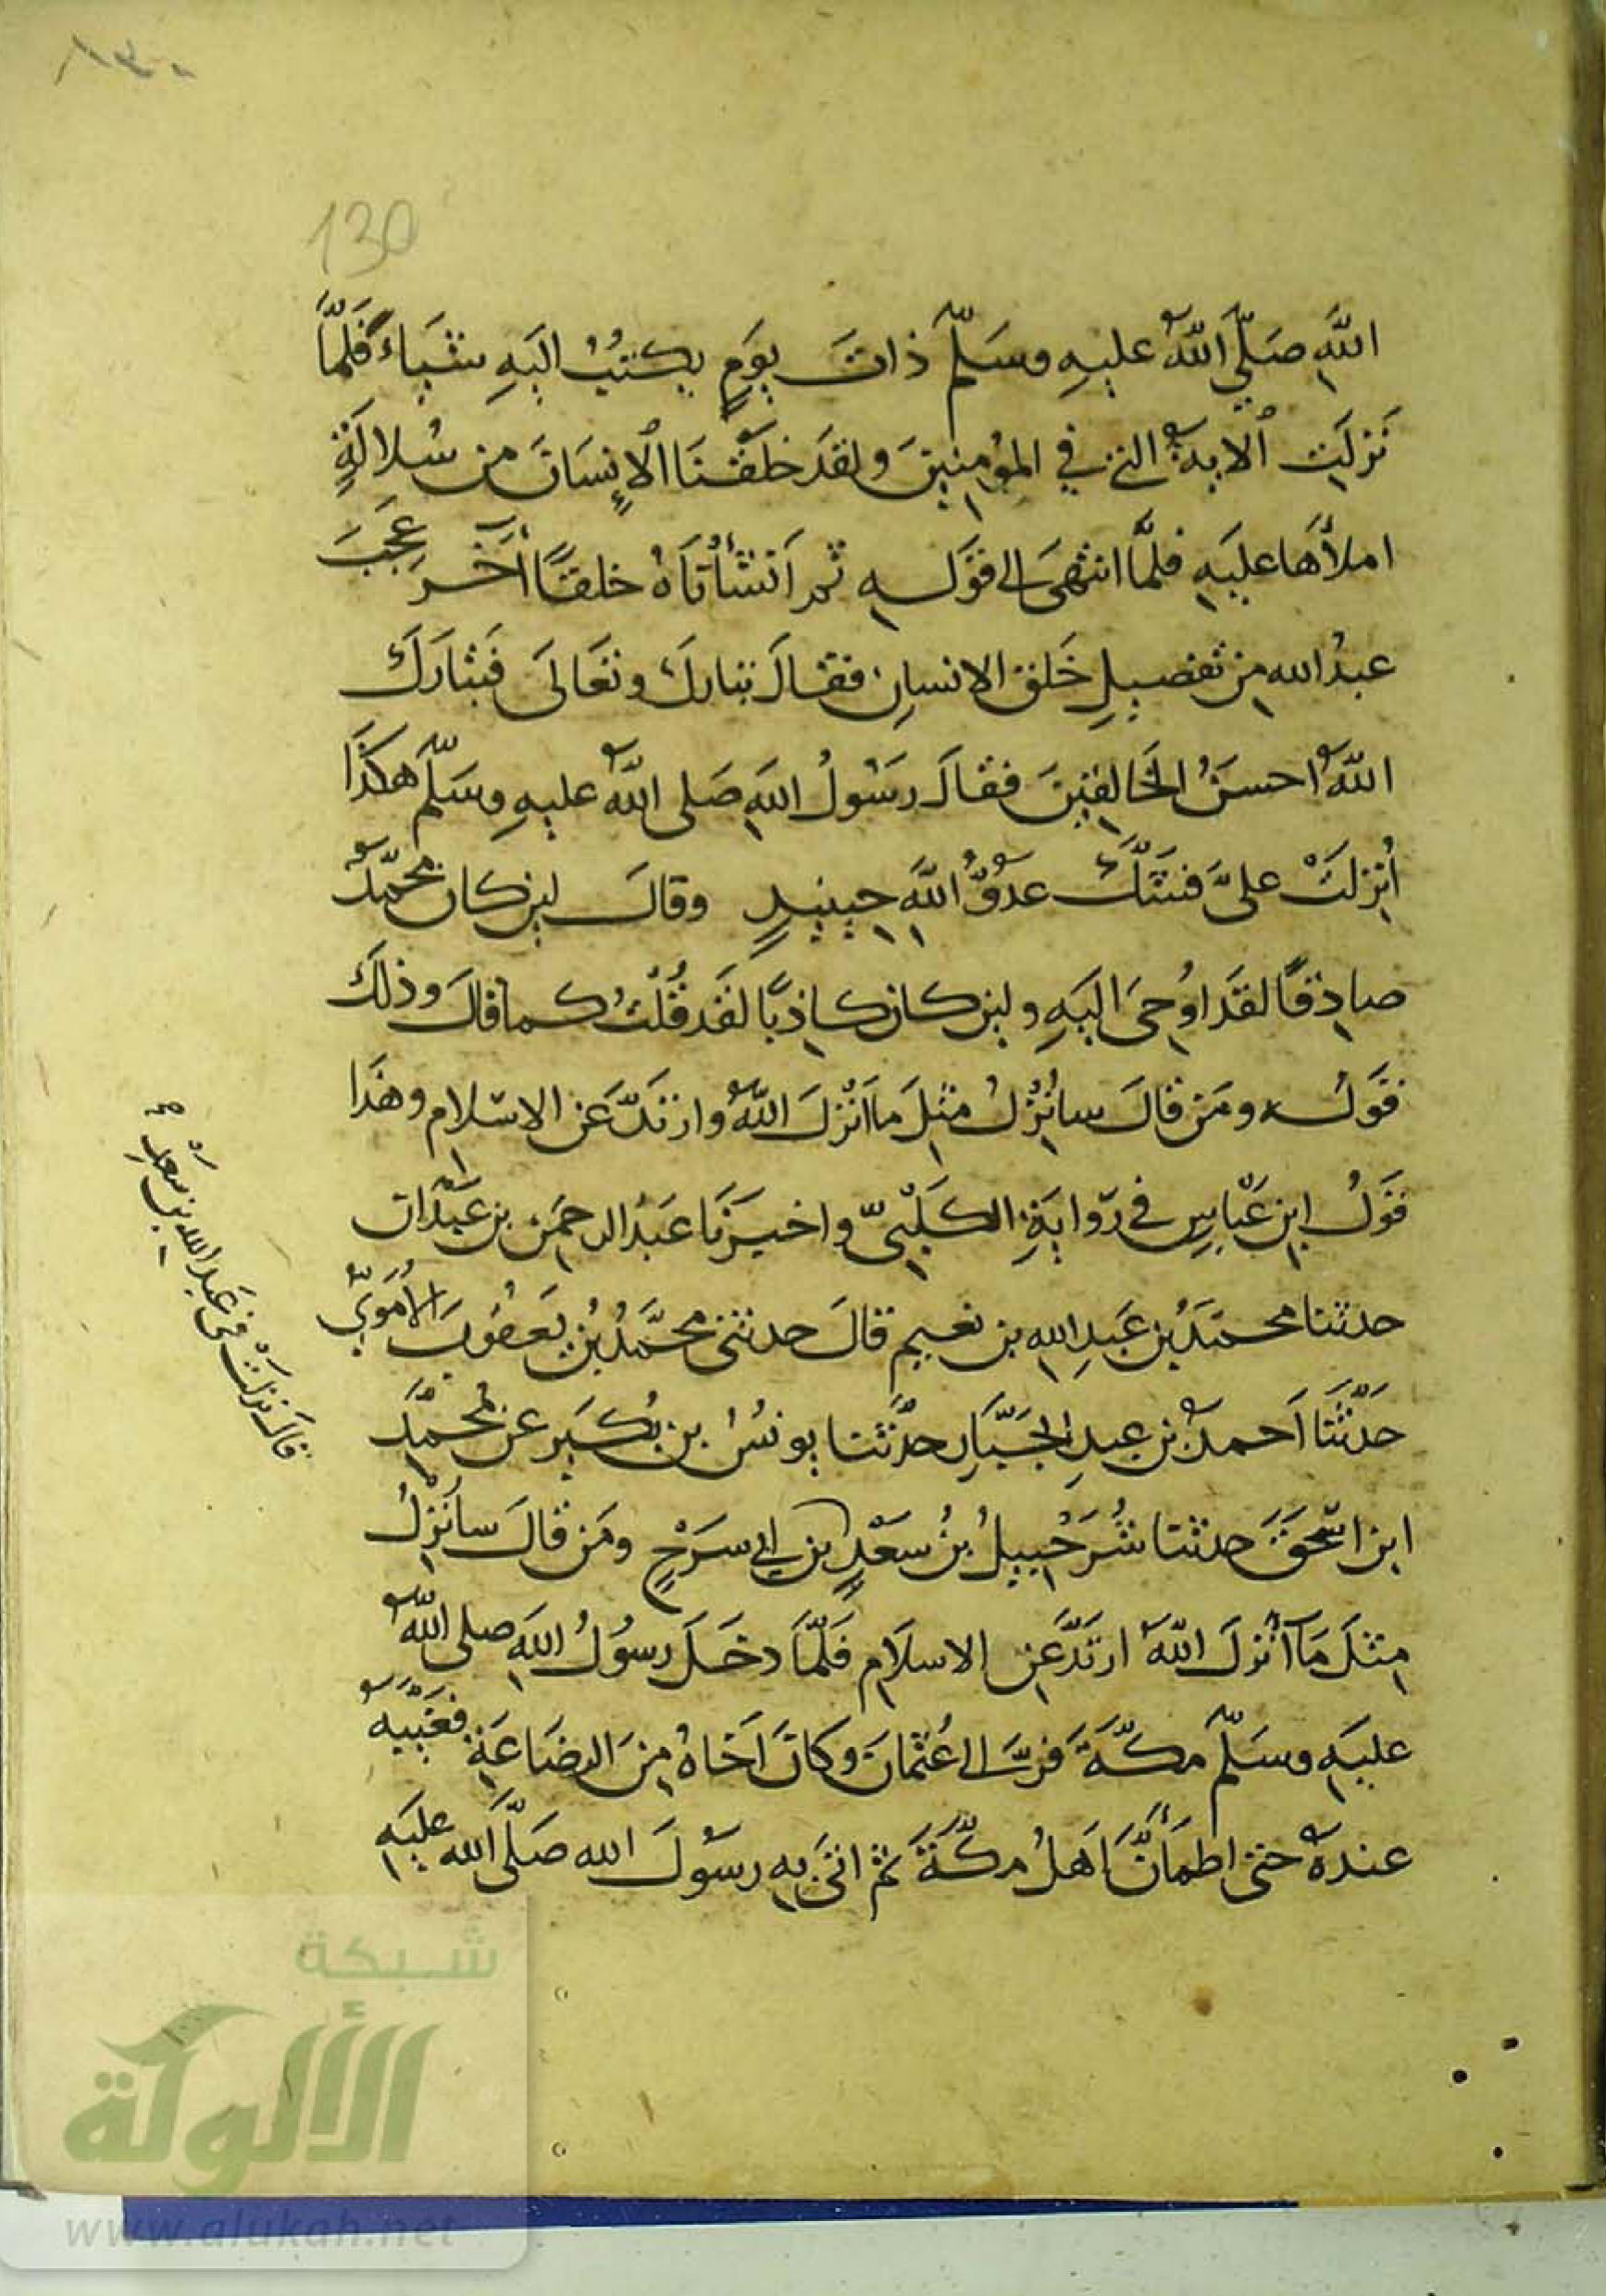 ١٣٠
130
اللَّهِ صَلَّى اللَّهُ عليهِ وسَلَّمَ ذاتَ يومٍ يكتبُ اليهِ شَيْاءً فَلَمَّا
نَزَلَتِ الايةُ التي في المؤمنينَ ولقدَ خلَقْنَا الاِنسَانَ من سُلالَةٍ
املأهَا عليهِ فلمَّا انتهَى الى قوَلهِ ثم اَنشَأْنَاهُ خلقًا آخَر عَجِبَ
عبدُ الله مِن تفصيلِ خَلقِ الانسانِ فقالَ تبارك وتَعَالَى فَتَبَارَكَ
اللَّهُ احسنُ الخَالِقينَ فقالَ رسُولُ اللهِ صَلى اللَّهُ عليهِ وسَلَّم هكذَا
اُنزلَتْ علىَّ فشَكَّ عدُوُّ اللَّهِ حِينيِذٍ وقالَ لين كان محمَّدٌ
صادِقًا لقدَ اوُحِىَ اليَهِ ولين كان كاذِبًا لقَد قُلْتُ كما قالَ وذلكَ
قوَلُه ومَن قالَ سأنزِلُ مثِلَ ما اَنْزَلَ اللَّهُ وارتَدَّ عَن الاسلام وهَذَا
قوَلُ ابنِ عَبّاسٍ في روَايَةِ الكَلْبيِّ واخبرَنَا عَبدُ الرحمَن بن عَبْدَان
حدثنا محمَّدُ بن عَبدِ الله بن نعيم قالَ حدثنى محمَّدُ بُن يَعقُوبَ الأُمَوِيُّ
حَدَّثَنَا اَحمدُ بن عبدِ الجَبَّارِ حدَّثنا يونسُ بن بُكَيرٍ عن مُحمَّدَ
ابن اسْحقَ حدثنا شُرَحْبِيلُ بنُ سَعْدٍ بن ابى سرَحْ ومَن قالَ سأنزِلُ
مثِلَ مَآ اَنْزلَ اللَّهُ ارتَدَّ عَنِ الاسلَامِ فَلَمَّا دخَلَ رسوُلُ اللهِ صلى اللَّهُ
عليَهِ وسلَّم مكَّةَ فرَّ الى عُثمانَ وكانَ اَخَاهُ مِنَ الرضَاعَةِ فغَيَّبَهُ
عندهُ حتى اطمَأنَّ اَهلُ مكَّةَ ثم اتىَ بهِ رسوُلَ الله صَلَّى اللهُ عليَهِ
قالَ نزَلَتْ فى عَبدِ اللهِ بنِ سَعْدِ
شبكة
الألوكة
www.alukah.net